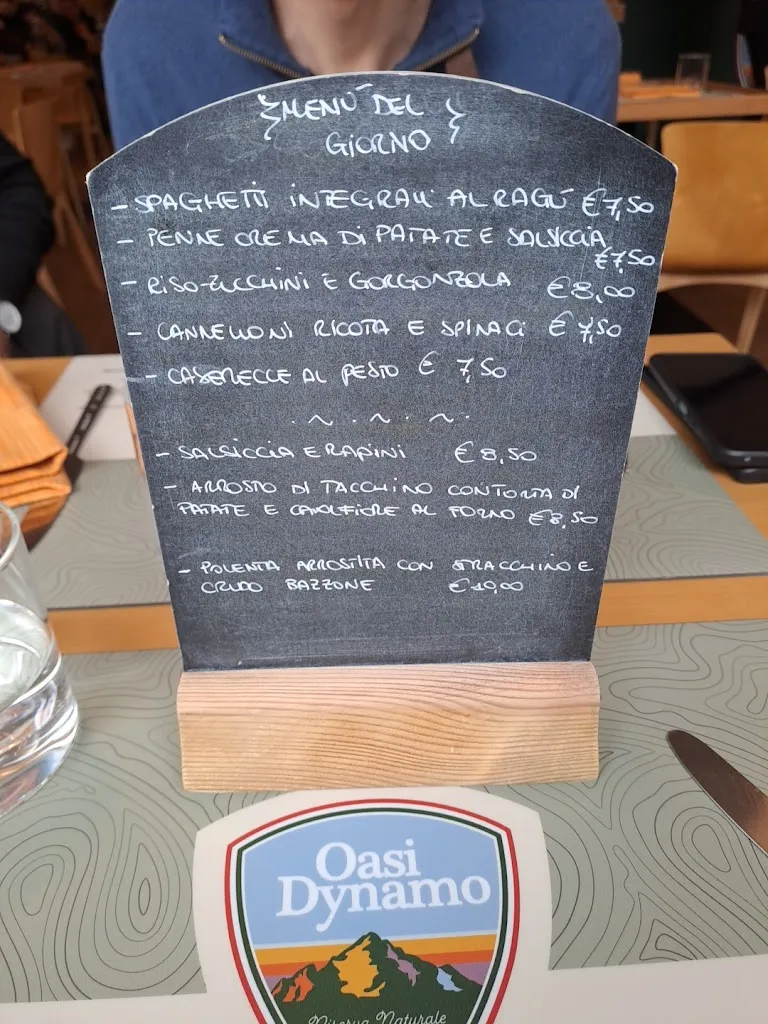 {MENÙ DEL }
GIORNO
- SPAGHETTI INTEGRALI AL RAGÙ €7,50
- PENNE CREMA DI PATATE E SALSICCIA
€7,50
- RISO-ZUCCHINI E GORGONZOLA €8,00
- CANNELLONI RICOTA E SPINACI €7,50
- CASERECCE AL PESTO € 7,50
. ~ . ~ . ~ .
- SALSICCIA E RAPINI €8,50
- ARROSTO DI TACCHINO CONTORTA DI
PATATE E CAVOLFIORE AL FORNO €8,50
- POLENTA ARROSTITA CON STRACCHINO E
CRUDO BAZZONE €10,00
Oasi
Dynamo
Riserva Naturale